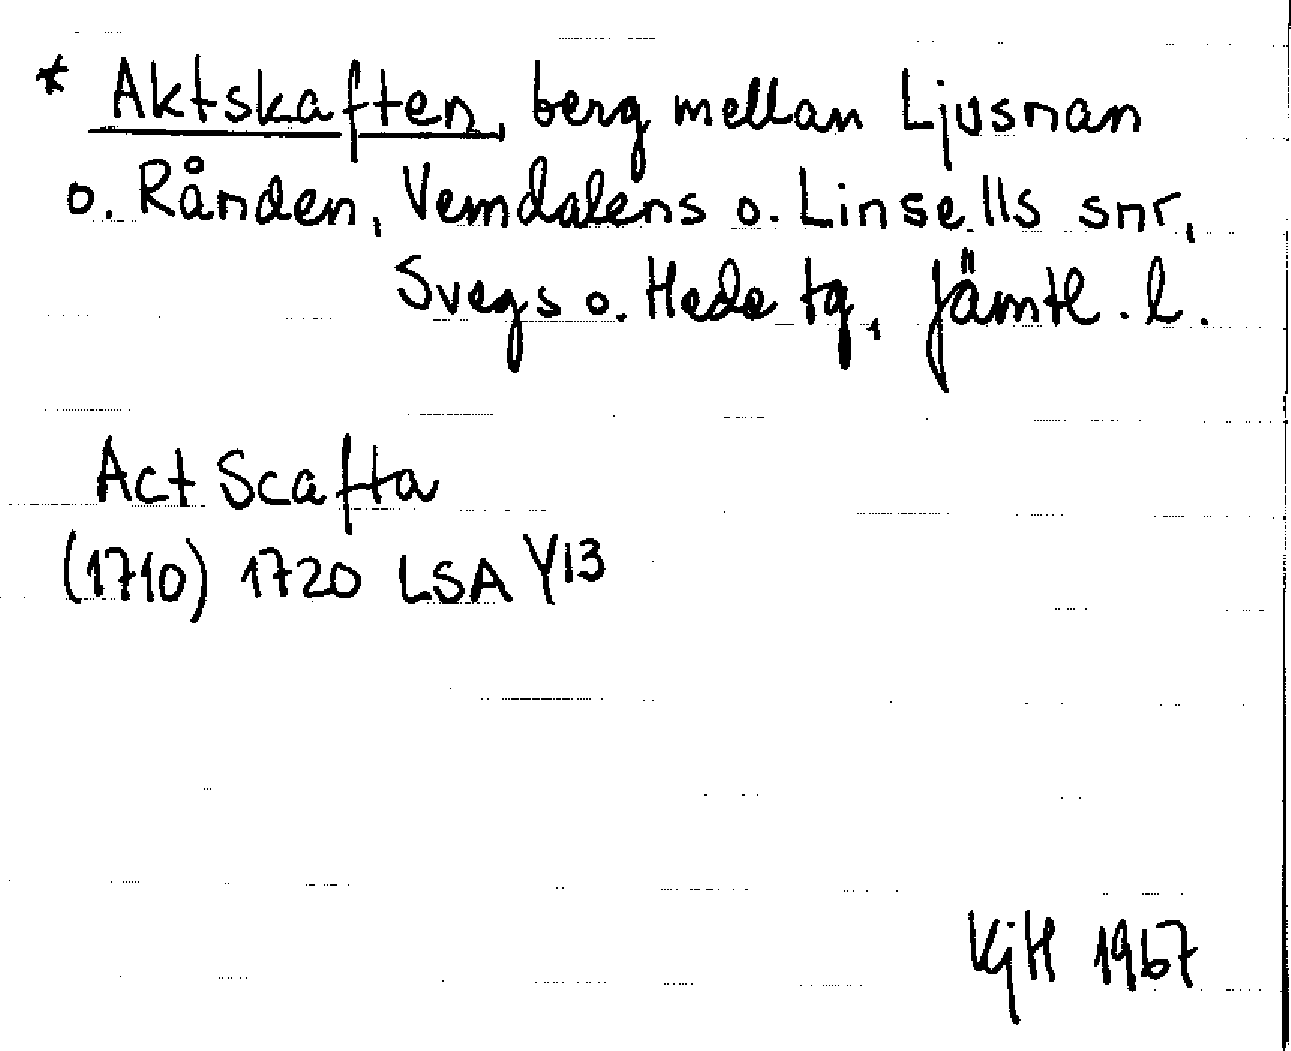 * Aktskaften, berg mellan Ljusnan
o. Rånden, Vemdalens o. Linsells snr,
Svegs o. Hede tg, Jämtl. l.
Act Scafta
(1710) 1720 LSA Y13
KjH 1967